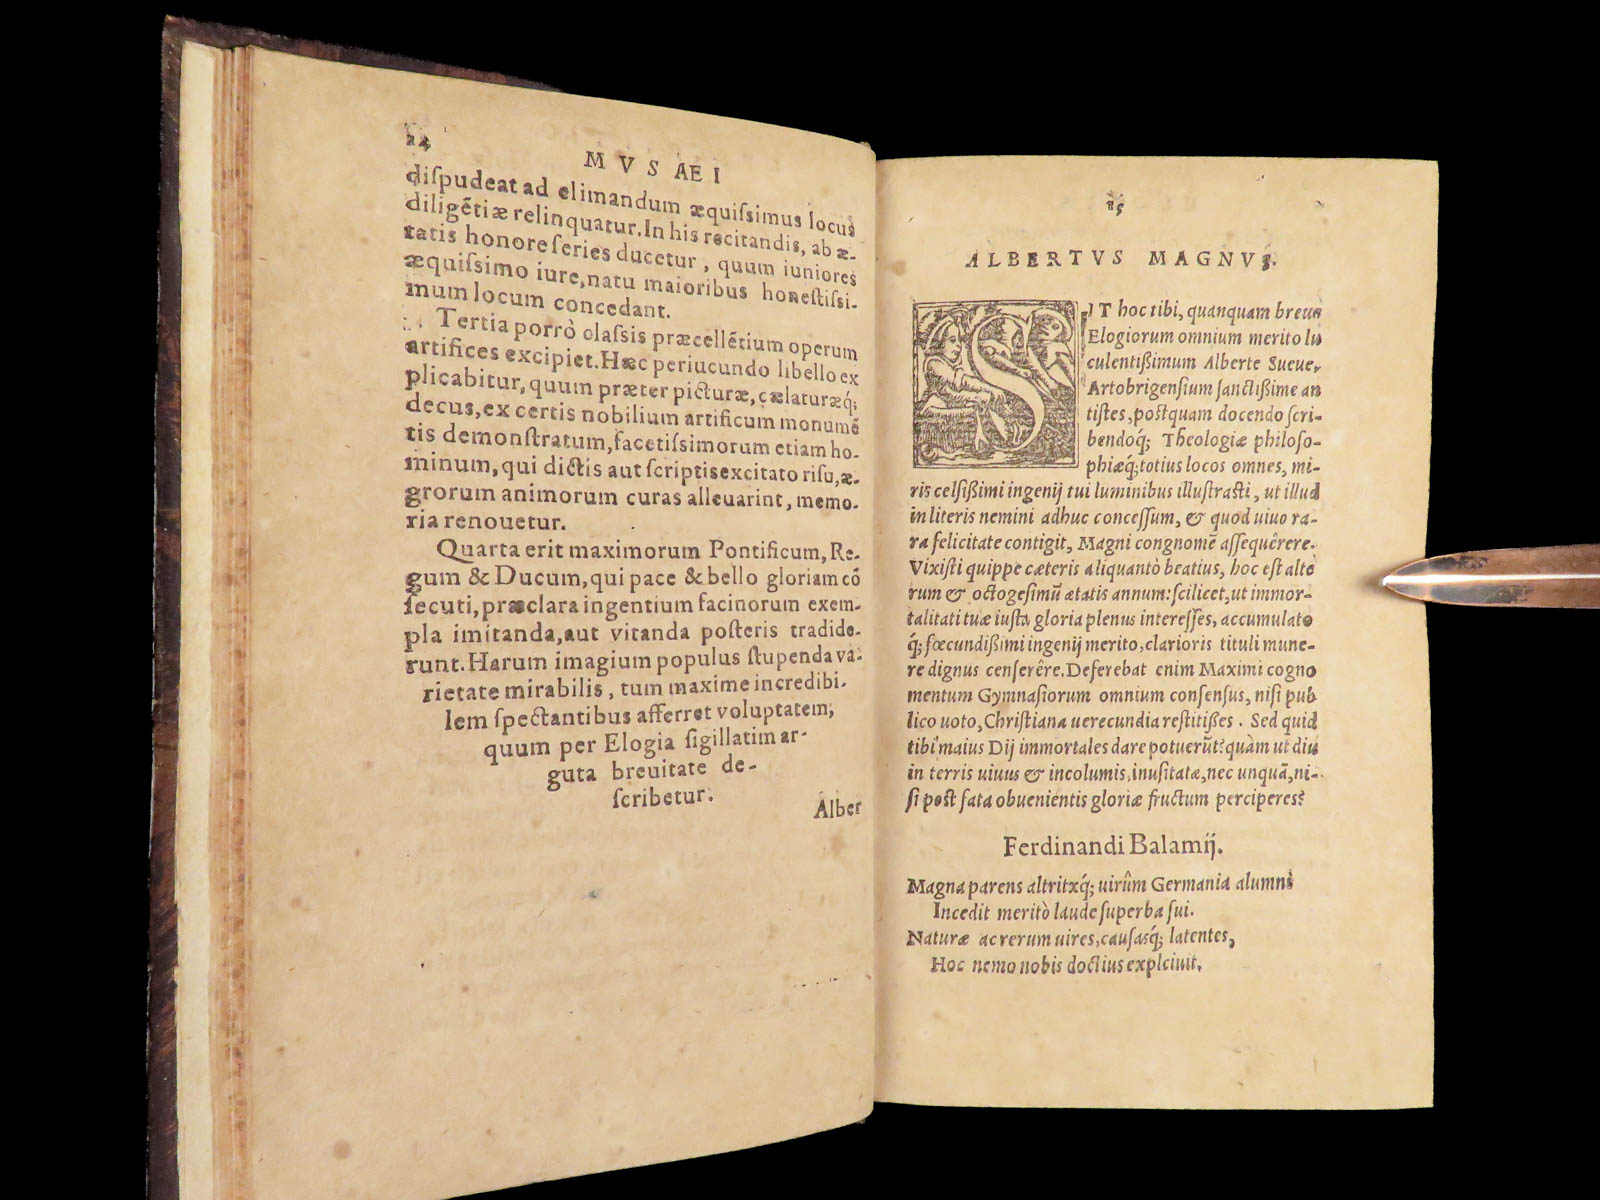 24
MVSAEI
diſpudeat ad elimandum æquiſsimus locus
diligẽtiæ relinquatur. In his recitandis, ab æ-
tatis honore ſeries ducetur, quum iuniores
æquiſsimo iure, natu maioribus honeſtiſsi-
mum locum concedant.
Tertia porrò claſsis præcellẽtium operum
artifices excipiet. Hæc periucundo libello ex
plicabitur, quum præter picturæ, cælaturæq́;
decus, ex certis nobilium artificum monumẽ
tis demonſtratum, facetiſsimorum etiam ho-
minum, qui dictis aut ſcriptis excitato riſu, æ-
grorum animorum curas alleuarint, memo-
ria renouetur.
Quarta erit maximorum Pontificum, Re-
gum & Ducum, qui pace & bello gloriam cõ
ſecuti, præclara ingentium facinorum exem-
pla imitanda, aut vitanda poſteris tradide-
runt. Harum imagium populus ſtupenda va-
rietate mirabilis, tum maxime incredibi-
lem ſpectantibus afferret voluptatem,
quum per Elogia ſigillatim ar-
guta breuitate de-
ſcribetur.
Alber
25
ALBERTVS MAGNVS.
SIT hoc tibi, quanquam breue
Elogiorum omnium merito lu
culentißimum Alberte Sueue,
Artobrigenſium ſanctißime an
tiſtes, poſtquam docendo ſcri-
bendoq́; Theologiæ philoſo-
phiæq́; totius locos omnes, mi-
ris celſißimi ingenij tui luminibus illuſtraſti, ut illud
in literis nemini adhuc conceſſum, & quod uiuo ra-
ra felicitate contigit, Magni congnomẽ aſſequêrere.
Vixiſti quippe cæteris aliquantò beatius, hoc eſt alte
rum & octogeſimũ ætatis annum: ſcilicet, ut immor-
talitati tuæ iuſta gloria plenus intereſſes, accumulato
q́; fœcundißimi ingenij merito, clarioris tituli mune-
re dignus cenſerêre. Deferebat enim Maximi cogno
mentum Gymnaſiorum omnium conſenſus, niſi pub
lico uoto, Chriſtiana uerecundia reſtitißes. Sed quid
tibi maius Dij immortales dare potuerũt? quàm ut diu
in terris uiuus & incolumis, inuſitatæ, nec unquã, ni-
ſi poſt fata obuenientis gloriæ fructum perciperes?
Ferdinandi Balamij.
Magna parens altritxq́; uirûm Germania alumni
Incedit meritò laude ſuperba ſui.
Naturæ ac rerum uires, cauſasq́; latentes,
Hoc nemo nobis doctius explciuit.